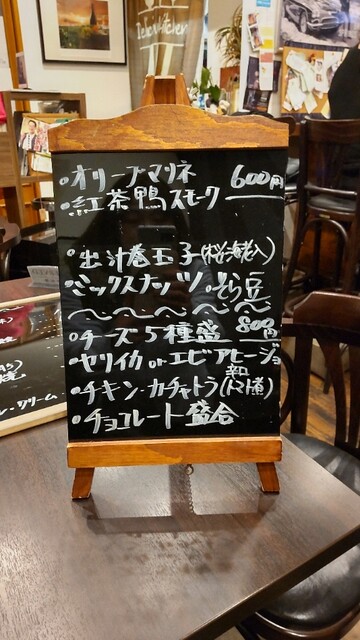 ・オリーブマリネ 600円
・紅茶鴨スモーク
・出汁巻玉子(桜海老入)
・ミックスナッツ・そら豆
〜〜〜〜〜 800円
・チーズ5種盛
・ヤリイカorエビアヒージョ
・チキン・カチャトラ(トマト煮)
・チョコレート盛合